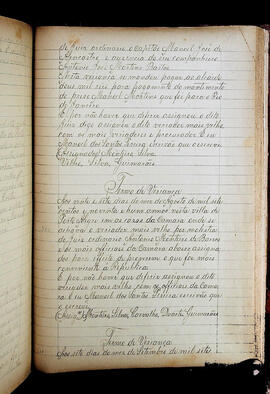 de Juiz ordinario o capitão Manoel José de
Alencastre e auzencia de seu companheiro
Antonio José Martins Bastos.
Nesta vereança se mandou pagar ao alcaide
dous mil reis para pagamento do mantimento
do preso Manoel Martins que foi para o Rio
de Janeiro.
E por não haver que deferir assignou o dito
Juiz digo assignou o dito vereador mais velho
com os mais vereadores e procurador E eu
Manoel dos Santos escrivão que escrevi
Assignados Moreira, Silva,
Velho, Silva, Guimarães.
Termo de Vereança
Aos vinte e sete dias do mez de Agosto de mil sete
centos e noventa e hum annos nesta villa de
Porto Alegre em as casas da Camara onde se
achava o vereador mais velho por molestia
do Juiz ordinario Antonio Martins de Barros
e os mais officiaes da Camara abaixo assigna
dos para effeito de proverem o que for mais
conveniente a Republica
E por não haver que deferir assignou o dito
vereador mais velho com os officiaes da Cama
ra E eu Manoel dos Santos escrivão que
o escrevi.
Silva, Carvalho, Duarte, Guimarães
Termo de Vereança
Aos sete dias do mez de Setembro de mil sete